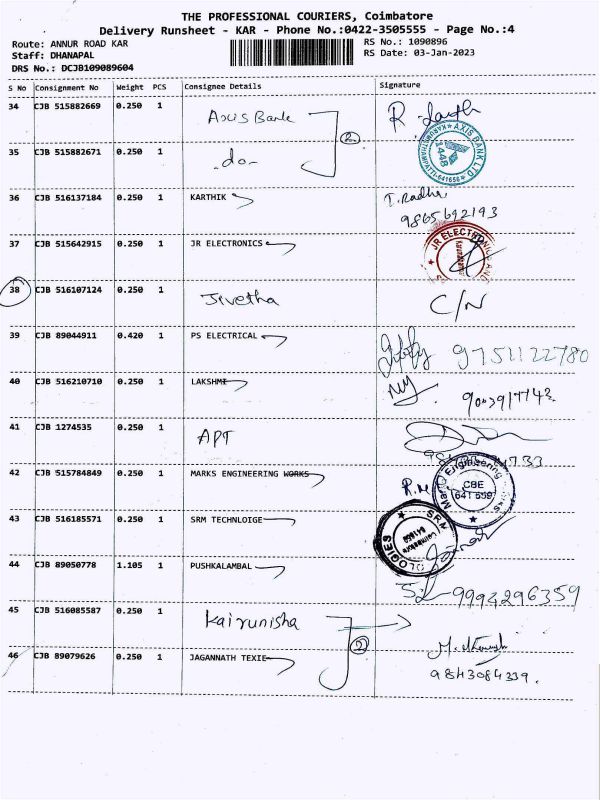 THE PROFESSIONAL COURIERS, Coimbatore
Delivery Runsheet - KAR - Phone No.:0422-3505555 - Page No.:4
Route: ANNUR ROAD KAR
RS No.: 1090896
Staff: DHANAPAL
RS Date: 03-Jan-2023
DRS No.: DCJB109089604
S No Consignment No Weight PCS Consignee Details Signature
34 CJB 515882669 0.250 1 Axis Bank
AXIS BANK LTD
35 CJB 515882671 0.250 1 -do- 2
36 CJB 516137184 0.250 1 KARTHIK T. Radha
9865692193
37 CJB 515642915 0.250 1 JR ELECTRONICS JR ELECTRONIC
38 CJB 516107124 0.250 1 Jivetha C/N
39 CJB 89044911 0.420 1 PS ELECTRICAL 9751122780
40 CJB 516210710 0.250 1 LAKSHMI
41 CJB 1274535 0.250 1 APT
42 CJB 515784849 0.250 1 MARKS ENGINEERING WORKS
Engineering
CBE
641 659
43 CJB 516185571 0.250 1 SRM TECHNLOIGE SRM
44 CJB 89050778 1.105 1 PUSHKALAMBAL
9994296359
45 CJB 516085587 0.250 1 Kairunisha
2
46 CJB 89079626 0.250 1 JAGANNATH TEXIE
9843084339.